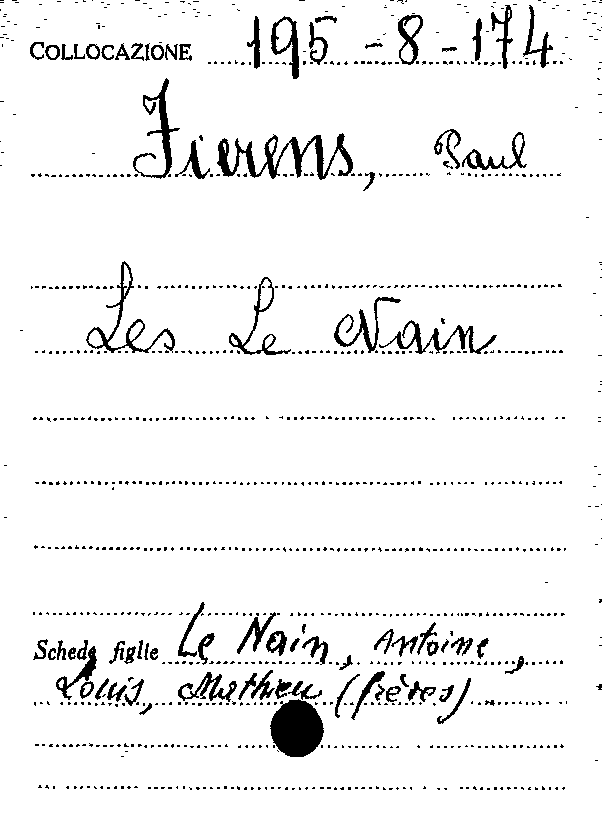 COLLOCAZIONE 195-8-174
Fierens, Paul
Les Le Nain
Schede figlie Le Nain, Antoine,
Louis, Mathieu (frères)